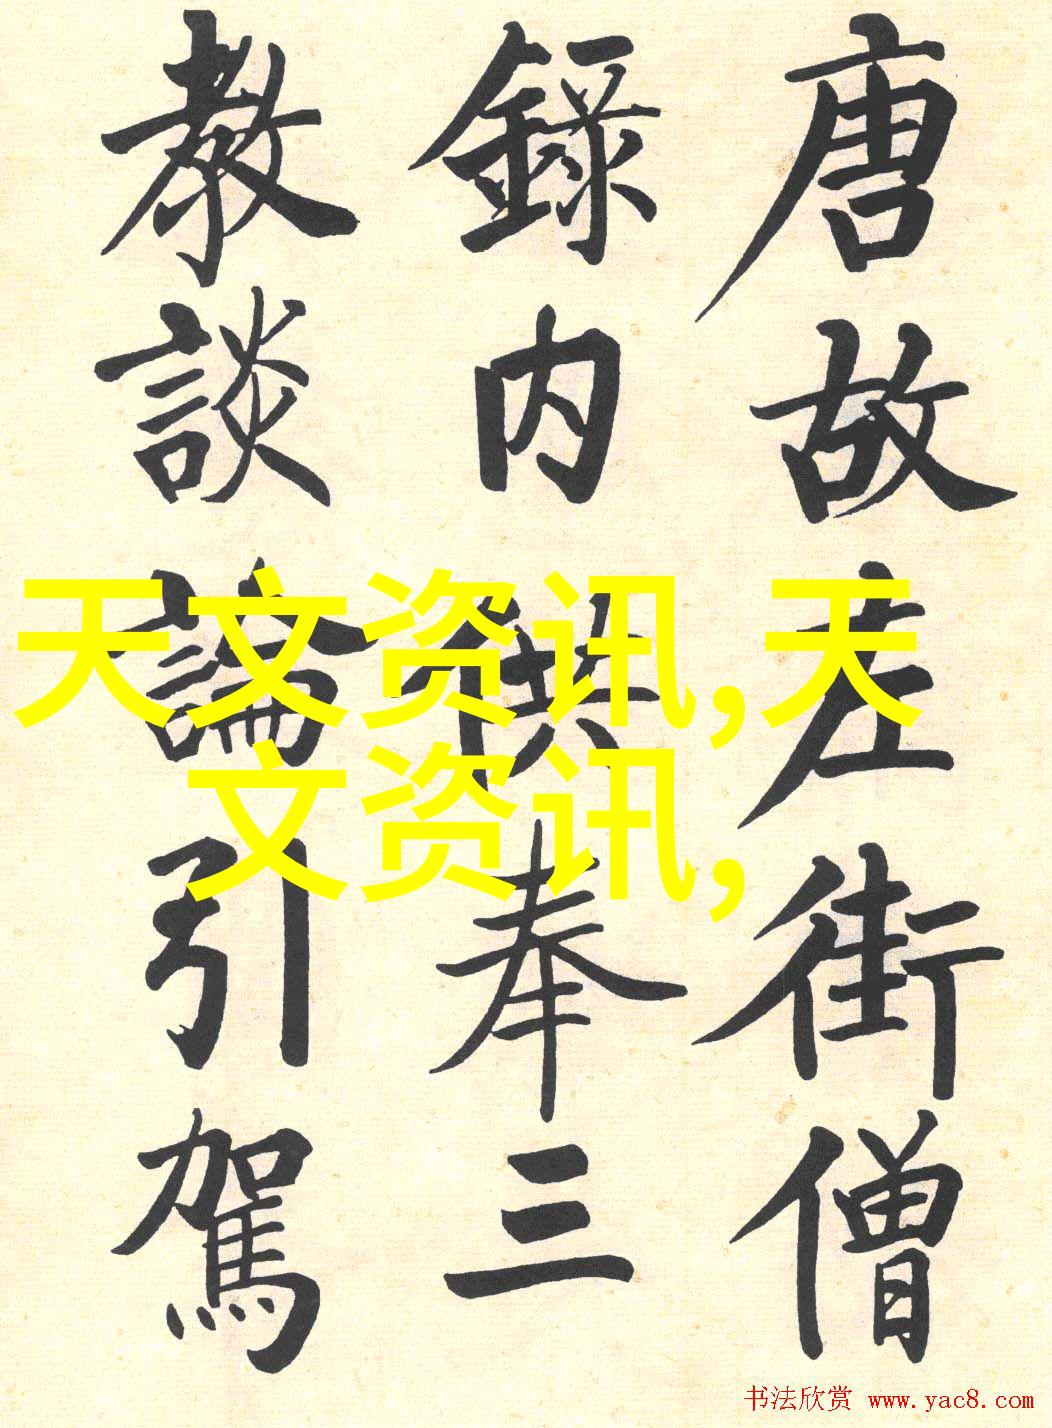 唐故左街僧
錄内供奉三
教談論引駕
天文资讯,天
文资讯,
书法欣赏 www.yac8.com